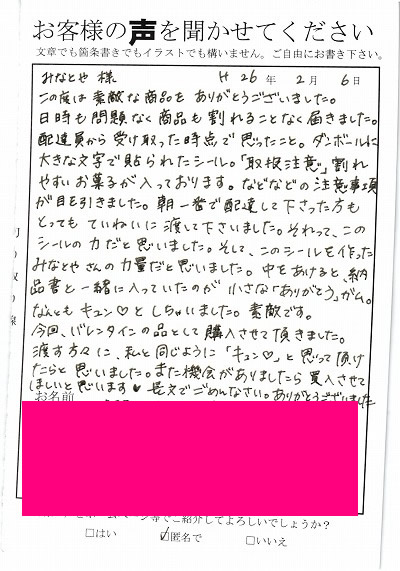 お客様の声を聞かせてください
文章でも箇条書きでもイラストでも構いません。ご自由にお書き下さい。
みなとや 様 H 26 年 2 月 6 日
この度は素敵な商品を ありがとうございました。
日時も問題なく商品も割れることなく届きました。
配達員から受け取った時点で思ったこと。ダンボールに
大きな文字で貼られたシール。「取扱注意」割れ
やすいお菓子が入っております。などなどの注意事項
が目を引きました。朝一番で配達して下さった方も
とっても ていねいに渡して下さいました。それって、この
シールの力だと思いました。そして、このシールを作った
みなとやさんの力量だと思いました。中をあけると、納
品書と一緒に入っていたのが 小さな「ありがとう」ガム。
なんとも キュン♡としちゃいました。素敵です。
今回、バレンタインの品として購入させて頂きました。
渡す方々に、私と同じように「キュン♡」と思って頂け
たらと思いました。また機会がありましたら買入させて
ほしいと思います♥ 長文でごめんなさい。ありがとうございました
お名前
でご紹介してよろしいでしょうか？
□はい ☑匿名で □いいえ